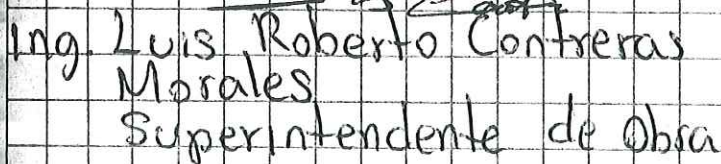 Ing. Luis Roberto Contreras
Morales
Superintendente de Obra